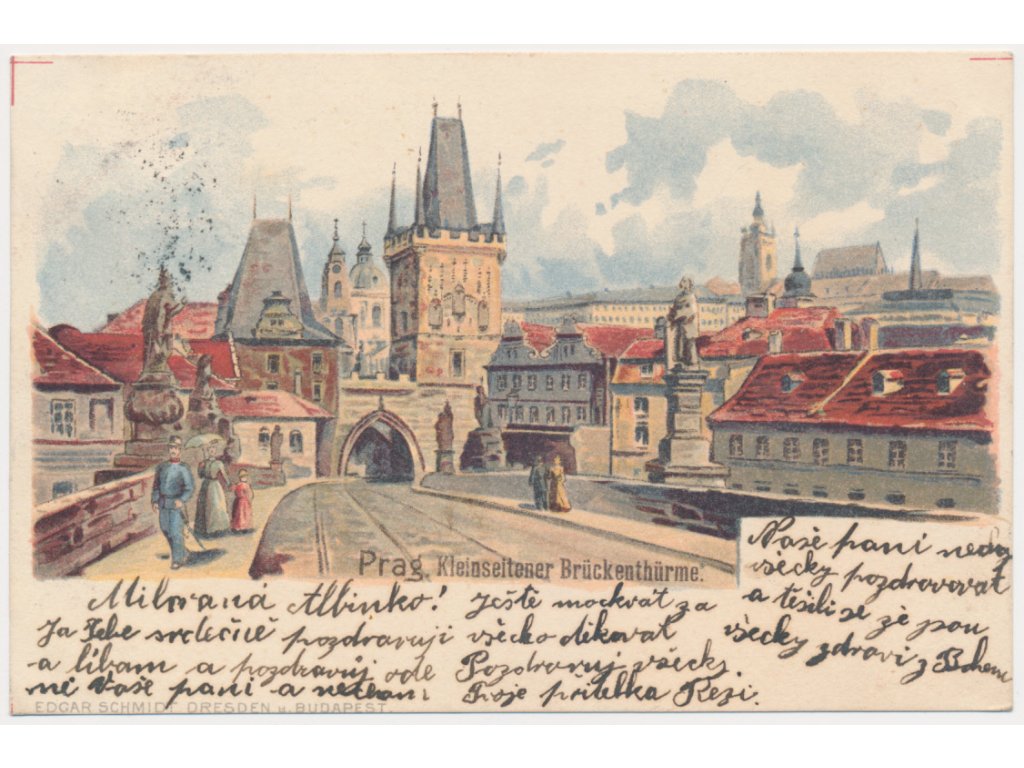 Prag. Kleinseitener Brückenthürme.
Milovaná Albinko!
Ja Tebe srdečně pozdravuji
a líbam a pozdravuj ode
mě Vaše pani a necham
Ještě mockrát za
všecko děkovat
Pozdravuj všecky
Tvoje přítelka Resi.
Naše pani nechaj
všecky pozdravovat
a těšili se že jsou
všecky zdravi z Bohem
EDGAR SCHMIDT DRESDEN u. BUDAPEST.